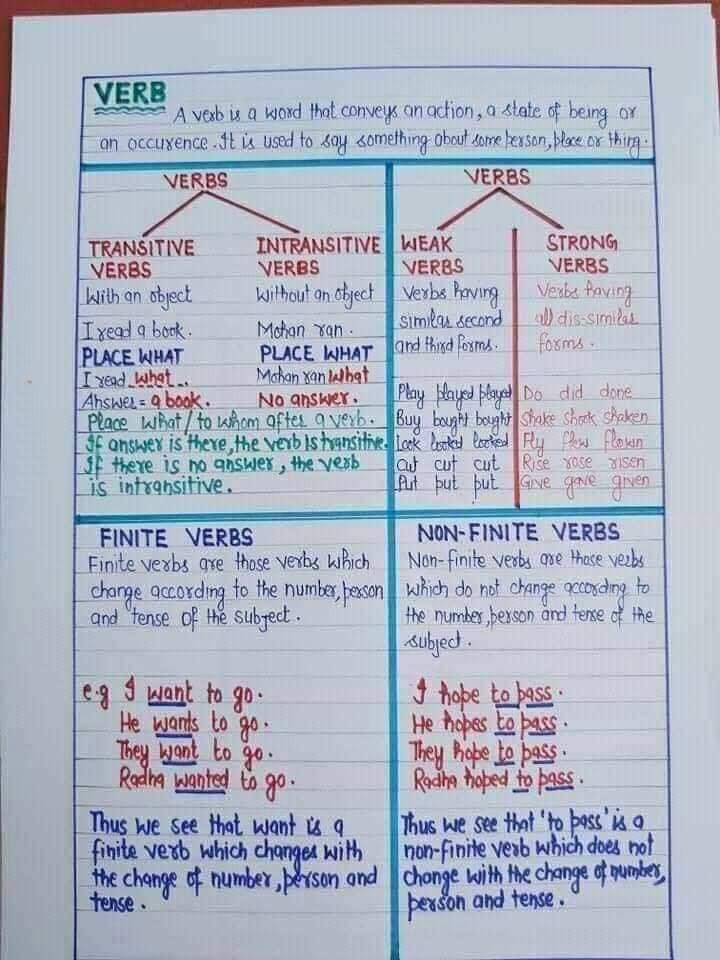 VERB
A verb is a word that conveys an action, a state of being or
an occurence. It is used to say something about some person, place or thing.
VERBS
TRANSITIVE VERBS
With an object
I read a book.
PLACE WHAT
I read what..
Answer = a book.
INTRANSITIVE VERBS
Without an object
Mohan ran.
PLACE WHAT
Mohan ran What
No answer.
Place what/to whom after a verb.
If answer is there, the verb is transitive.
If there is no answer, the verb
is intransitive.
VERBS
WEAK VERBS
Verbs having
similar second
and third forms.
Play played played
Buy bought bought
Look looked looked
Cut cut cut
Put put put
STRONG VERBS
Verbs having
all dis-similar
forms.
Do did done
Shake shook shaken
Fly flew flown
Rise rose risen
Give gave given
FINITE VERBS
Finite verbs are those verbs which
change according to the number, person
and tense of the subject.
e.g I want to go.
He wants to go.
They want to go.
Radha wanted to go.
Thus we see that want is a
finite verb which changes with
the change of number, person and
tense.
NON-FINITE VERBS
Non-finite verbs are those verbs
which do not change according to
the number, person and tense of the
subject.
I hope to pass.
He hopes to pass.
They hope to pass.
Radha hoped to pass.
Thus we see that 'to pass' is a
non-finite verb which does not
change with the change of number,
person and tense.